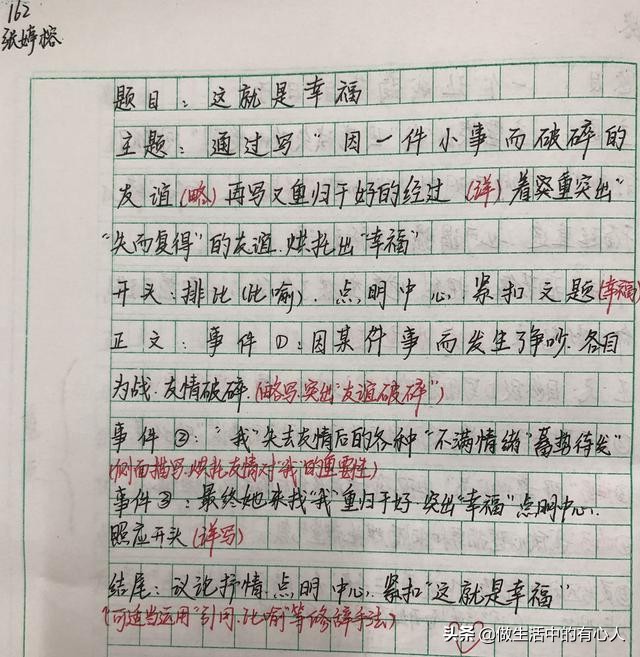 162
张婷榕
题目：这就是幸福
主题：通过写"因一件小事而破碎的
友谊(略)再写又重归于好的经过(详)着突重突出"
"失而复得"的友谊.烘托出"幸福"
开头：排比(比喻).点明中心.紧扣文题(幸福)
正文：事件①：因某件事而发生了争吵.各自
为战.友情破碎.(略写.突出"友谊破碎")
事件②："我"失去友情后的各种"不满情绪"蓄势待发
(侧面描写.烘托友情对"我"的重要性)
事件③：最终她来找"我"重归于好.突出"幸福"点明中心.
照应开头(详写)
结尾：议论抒情.点明中心.紧扣"这就是幸福"
(可适当运用"引用.比喻"等修辞手法)
头条@做生活中的有心人